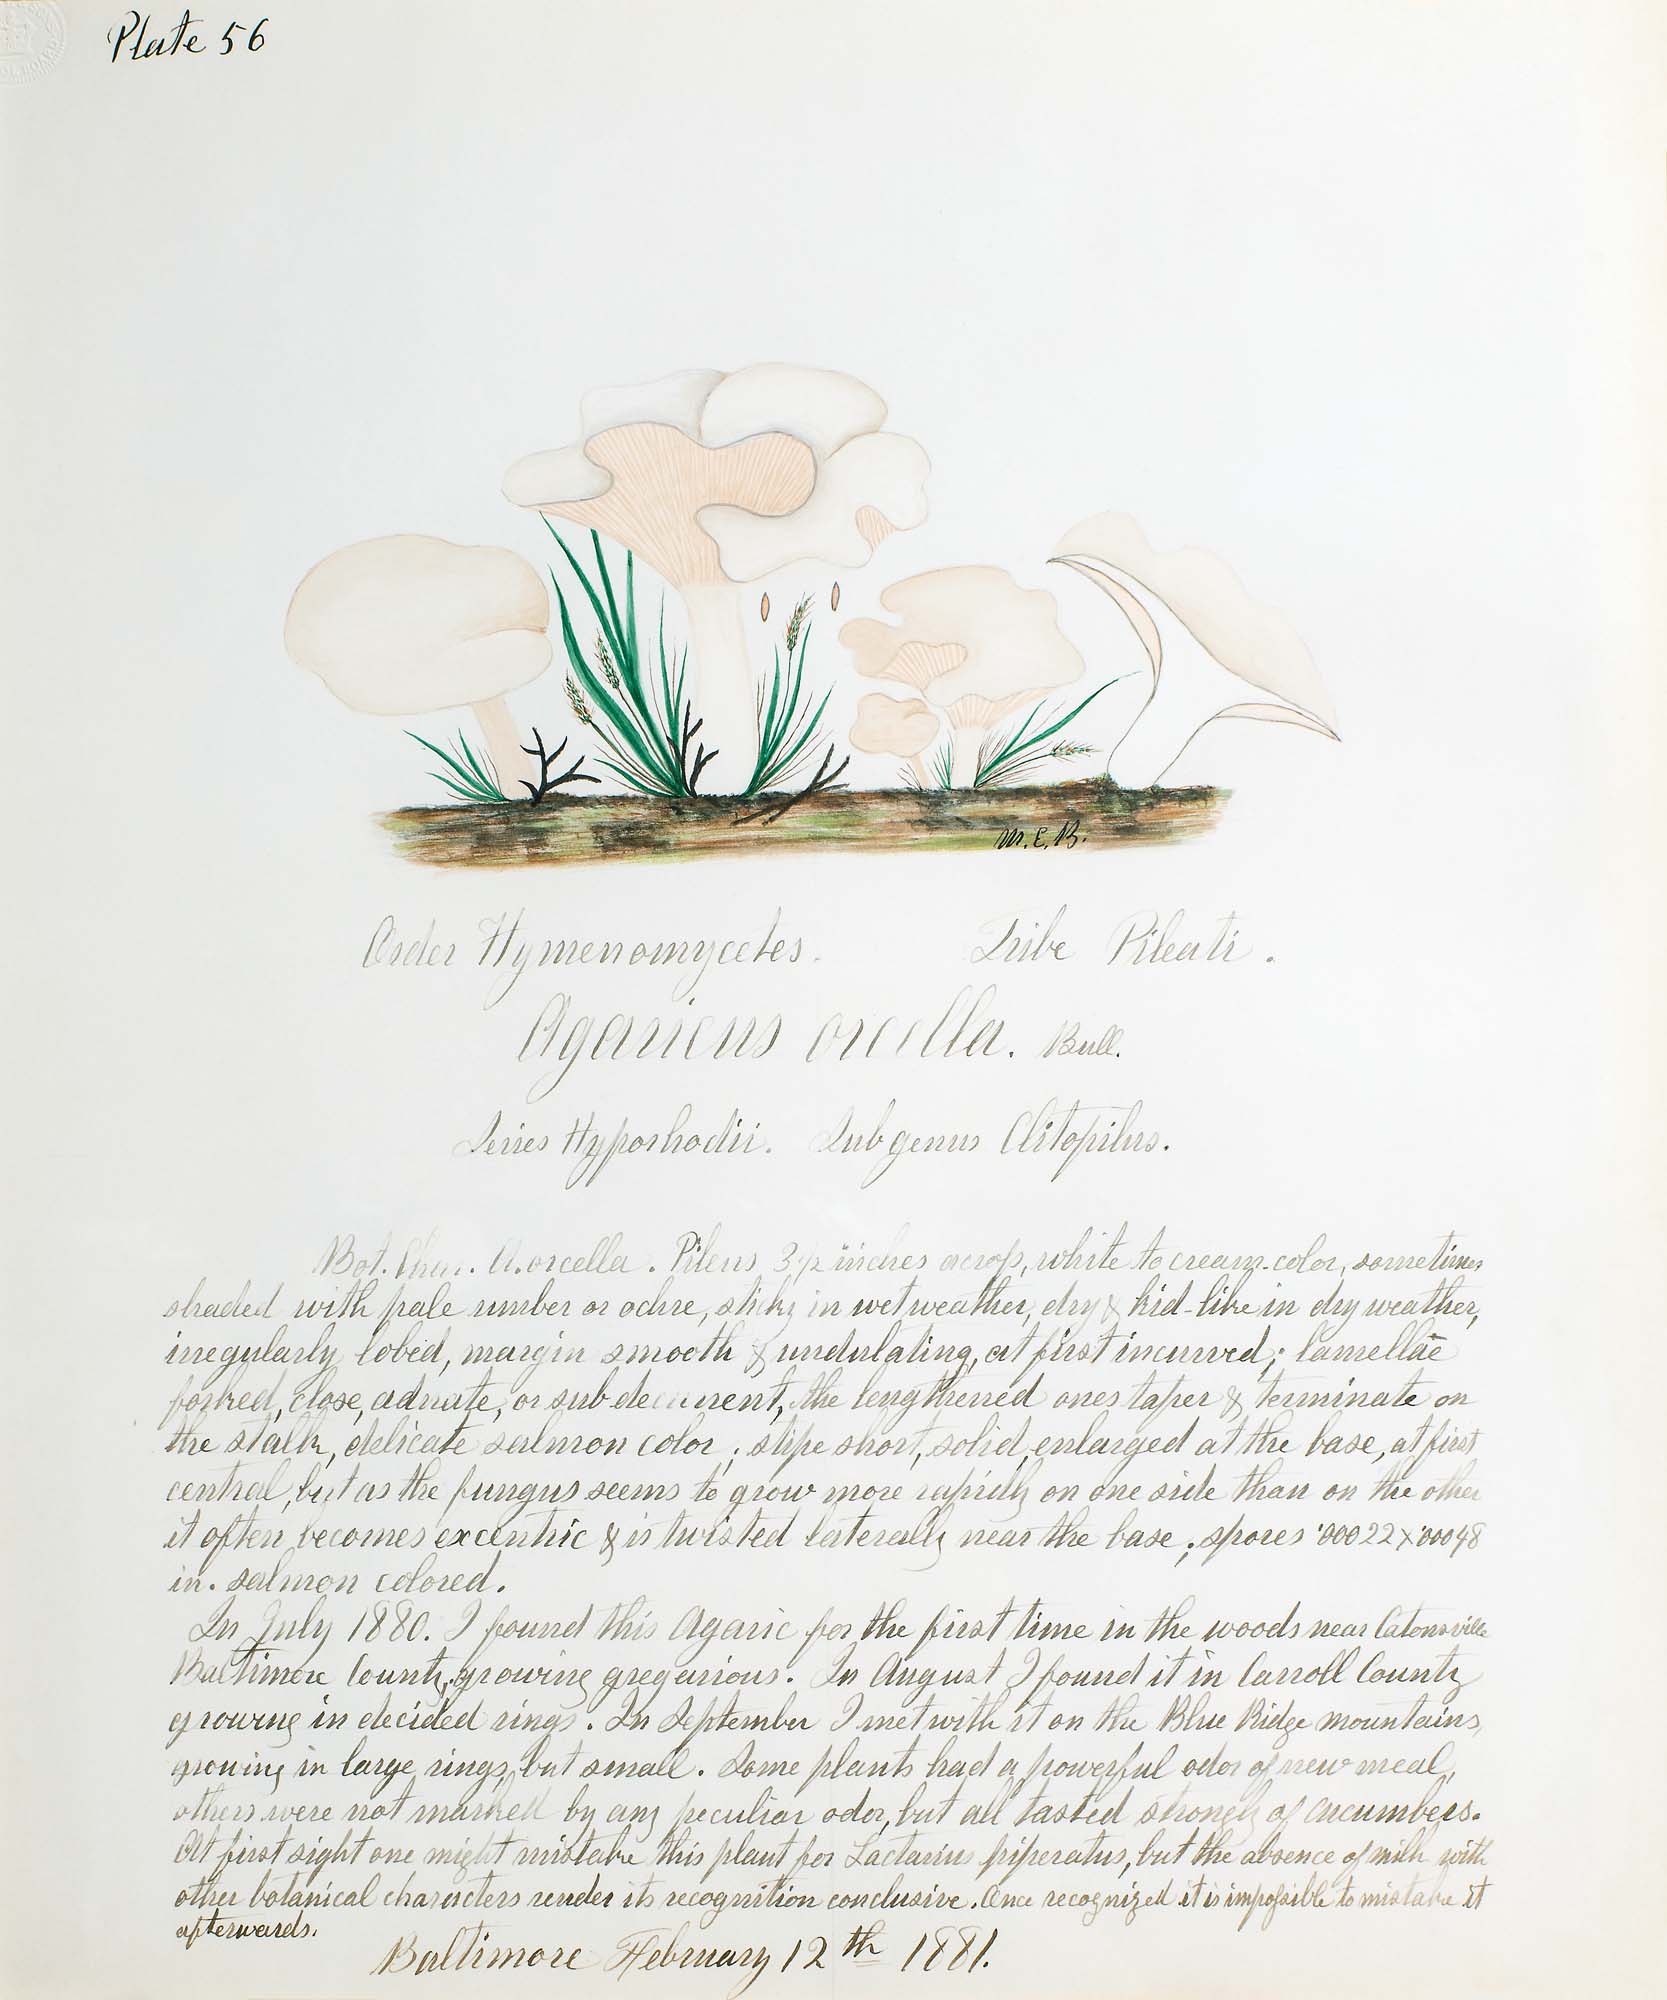 Plate 56
M. E. B.
Order Hymenomycetes. Tribe Pileati.
Agaricus orcella. Bull.
Series Hyporhodii. Subgenus Clitopilus.
Bot. Char. A. orcella. Pileus 3½ inches across, white to cream-color, sometimes
shaded with pale umber or ochre, sticky in wet weather, dry & kid-like in dry weather,
irregularly lobed, margin smooth & undulating, at first incurved; lamellae
forked, close, adnate, or sub decurrent, the lengthened ones taper & terminate on
the stalk, delicate salmon color; stipe short, solid, enlarged at the base, at first
central, but as the fungus seems to grow more rapidly on one side than on the other
it often becomes excentric & is twisted laterally near the base; spores '00022 x '00048
in. salmon colored.
In July 1880. I found this Agaric for the first time in the woods near Catonsville
Baltimore County, growing gregarious. In August I found it in Carroll County
growing in decided rings. In September I met with it on the Blue Ridge mountains,
growing in large rings, but small. Some plants had a powerful odor of new meal,
others were not marked by any peculiar odor, but all tasted strongly of cucumbers.
At first sight one might mistake this plant for Lactarius piperatus, but the absence of milk with
other botanical characters render its recognition conclusive. Once recognized it is impossible to mistake it
afterwards.
Baltimore February 12th 1881.